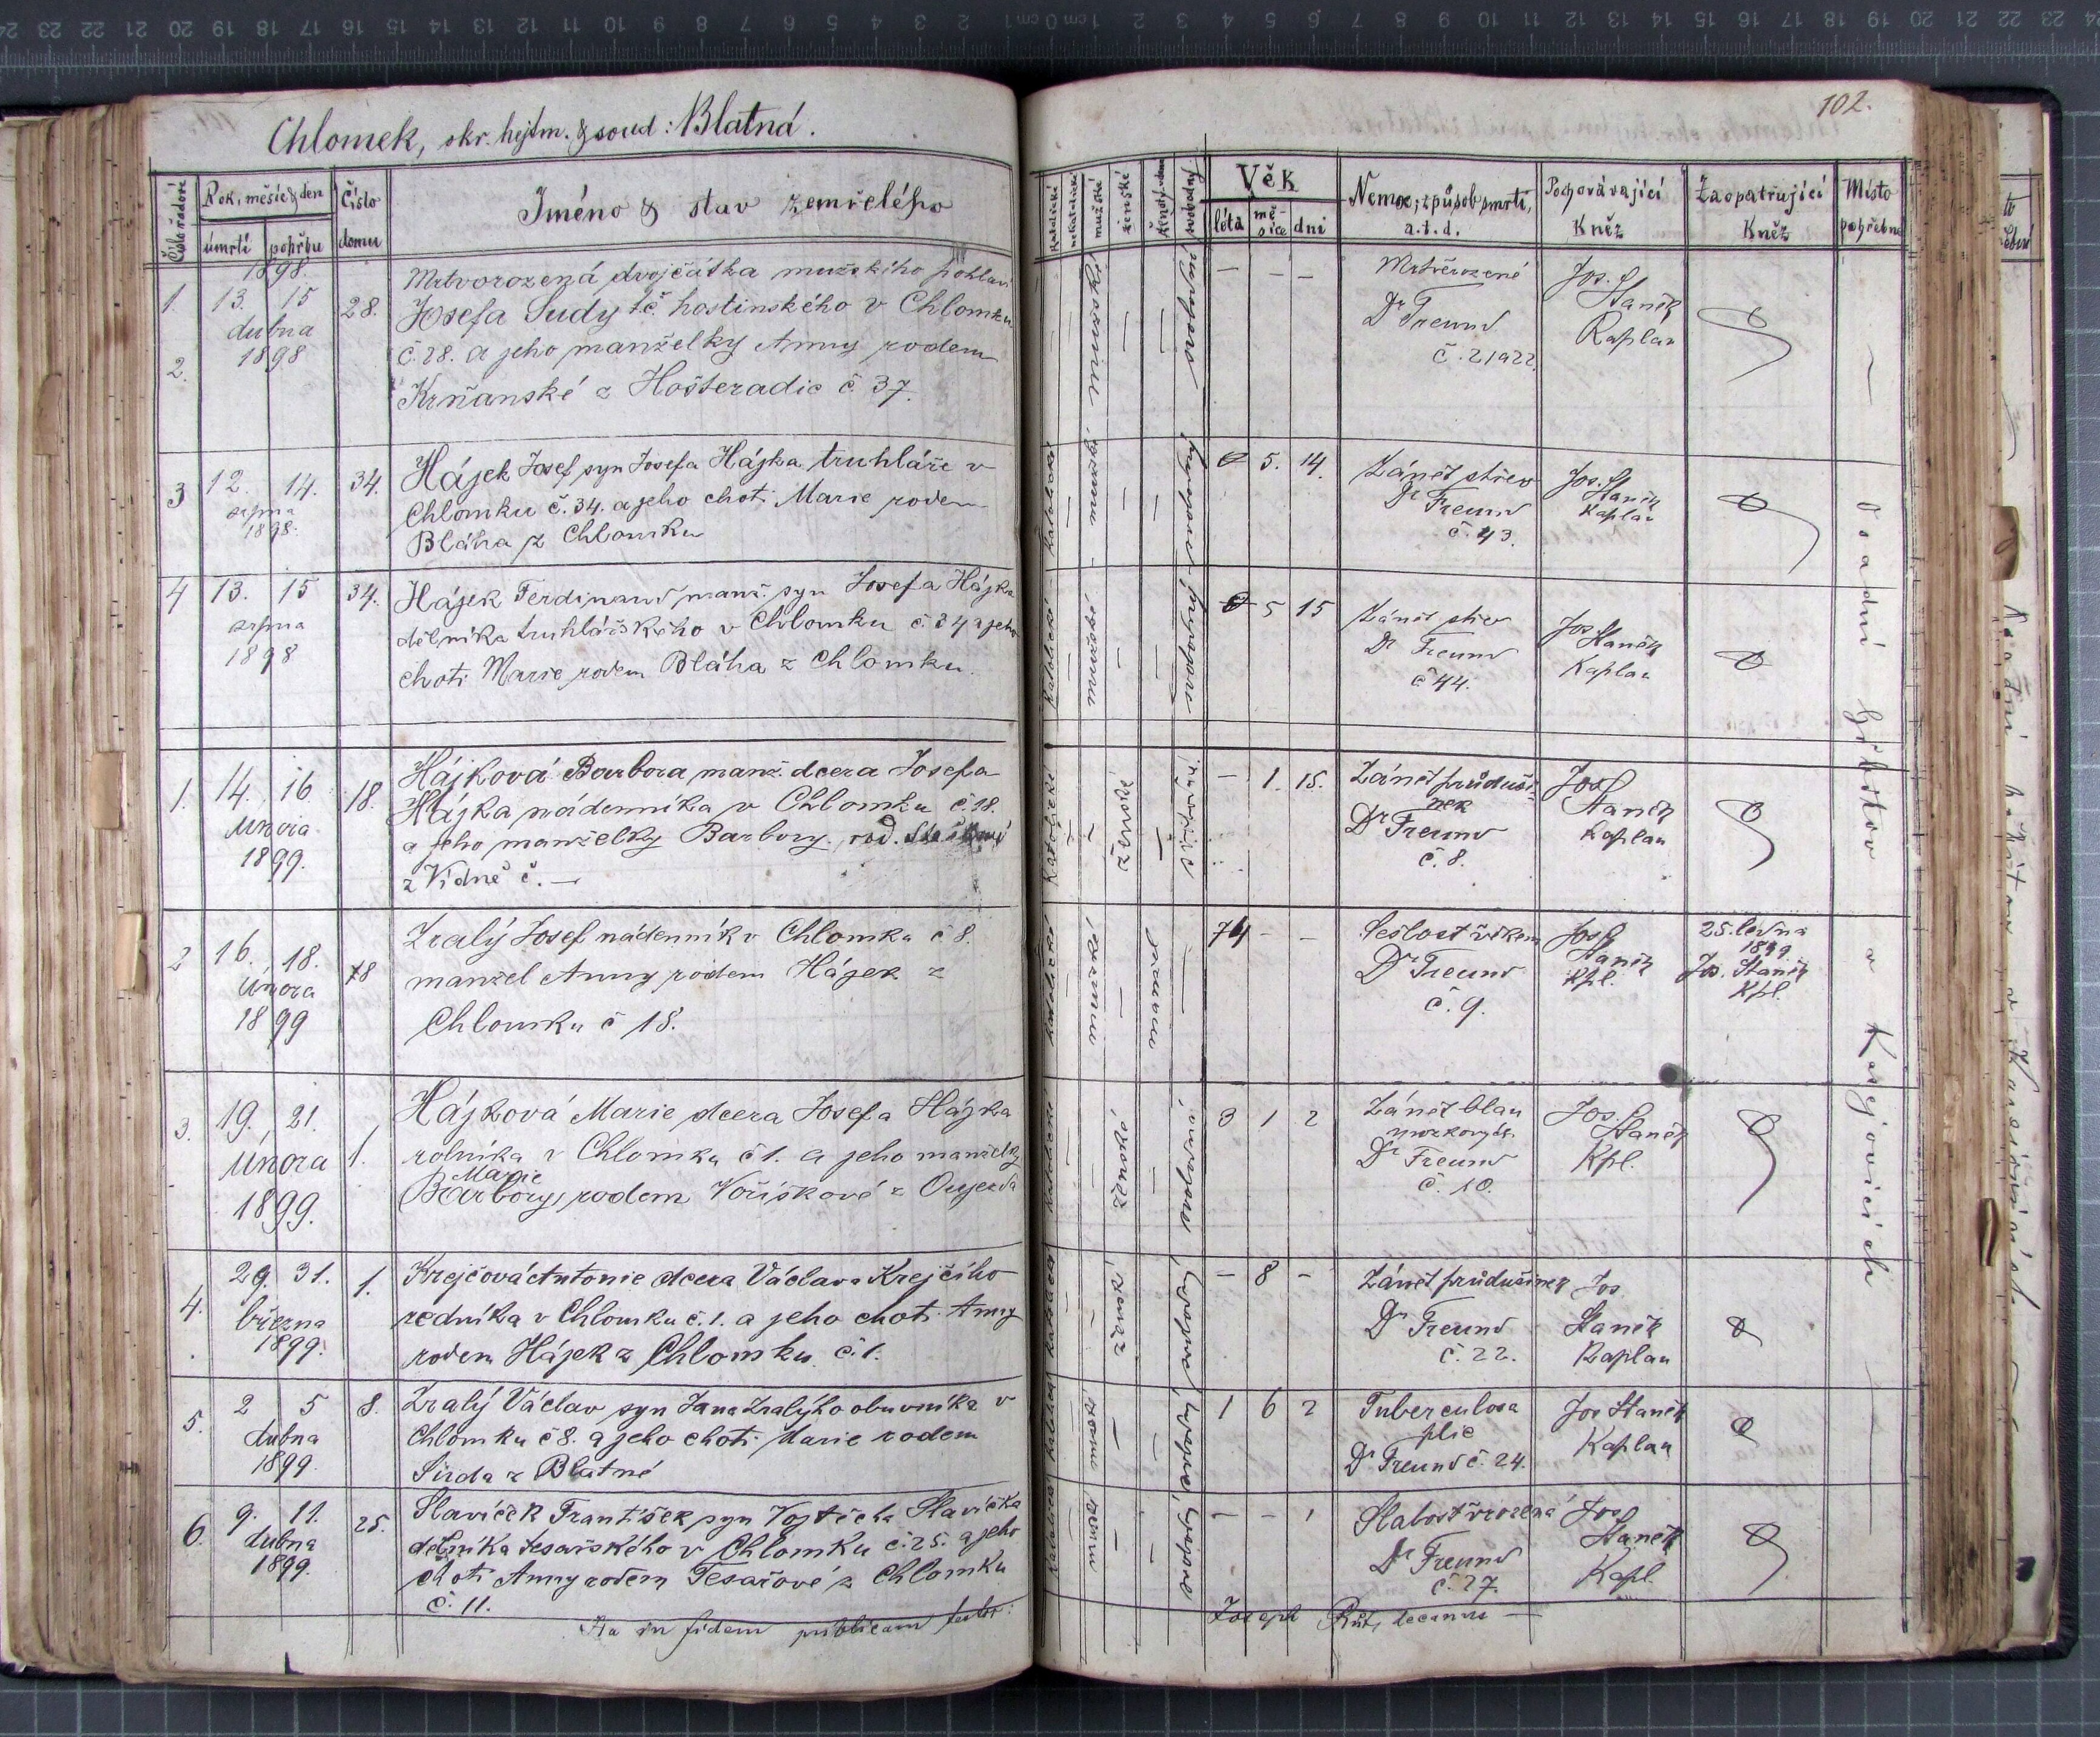 Chlomek, okr. hejtm. & soud: Blatná.
102.
Číslo řadové
Rok, měsíc & den
úmrtí
pohřbu
Číslo domu
Jméno & stav zemřelého
Katolické
nekatolické
mužské
ženské
svobodný
Věk
léta
měsíce
dni
Nemoc, způsob smrti,
a.t.d.
Pochovávající
Kněz
Zaopatřující
Kněz
Místo
pohřební
1898.
1.
2.
13. 15
dubna
1898
28.
Mrtvorozená dvojčátka mužského pohlaví
Josefa Sudy t.č. hostinského v Chlomku
č. 28. a jeho manželky Anny rodem
Krňanské z Hošteradic č 37.
— — —
Mrtvěrozené
Dr Freund
č. 21 a 22.
Jos. Staněk
Kaplan
3
12. 14.
srpna
1898.
34.
Hájek Josef syn Josefa Hájka truhláře v
Chlomku č. 34. a jeho choti Marie rodem
Bláha z Chlomku
0 5. 14.
Zánět střev
Dr Freund
č. 43.
Jos. Staněk
Kaplan
4
13. 15
srpna
1898
34.
Hájek Ferdinand manž. syn Josefa Hájka
dělníka truhlářského v Chlomku č 34 a jeho
choti Marie rodem Bláha z Chlomku.
0 5 15
Zánět střev
Dr Freund
č 44.
Jos Staněk
Kaplan
1.
14. 16.
února
1899.
18.
Hájková Barbora manž. dcera Josefa
Hájka nádenníka v Chlomku č. 18.
a jeho manželky Barbory. rod.
z Vídně č. —
— 1. 15.
Zánět průduši-
nek
Dr Freund
č. 8.
Jos Staněk
Kaplan
2
16. 18.
Února
1899
18
Zralý Josef nádenník v Chlomku č 8.
manžel Anny rodem Hájek z
Chlomku č 18.
74 - -
Sešlost věkem
Dr Freund
č. 9.
Jos Staněk
Kpl.
25. ledna
1899
Jos. Staněk
Kpl.
3.
19. 21.
Února
1899.
1.
Hájková Marie dcera Josefa Hájka
rolníka v Chlomku č 1. a jeho manželky
Marie
Barbory, rodem Voříškové z Oujezda
3 1 2
Zánět blan
mozkových.
Dr Freund
č. 10.
Jos Staněk
Kpl.
4.
29. 31.
března
1899.
1.
Krejčová Antonie dcera Václava Krejčího
zedníka v Chlomku č. 1. a jeho choti Anny
rodem Hájek z Chlomku č. 1.
- 8 -
Zánět průdušinek
Dr Freund
č. 22.
Jos
Staněk
Kaplan
5.
2 5
dubna
1899.
8.
Zralý Václav syn Jana Zralýho obuvníka v
Chlomku č 8. a jeho choti Marie rodem
Sirda z Blatné
1 6 2
Tuberculosa
plic
Dr Freund č. 24.
Jos Staněk
Kaplan
6.
9. 11.
dubna
1899.
25.
Slavíček František syn Vojtěcha Slavíčka
dělníka tesařského v Chlomku č. 25. a jeho
choti Anny rodem Tesařové z Chlomku
č. 11.
- - 1
Slabost vrozená
Dr Freund
č. 27.
Jos Staněk
Kapl.
Osadní hřbitov v Kasejovicích
Ita in fidem publicam testor:
Joseph Růt, decanus —